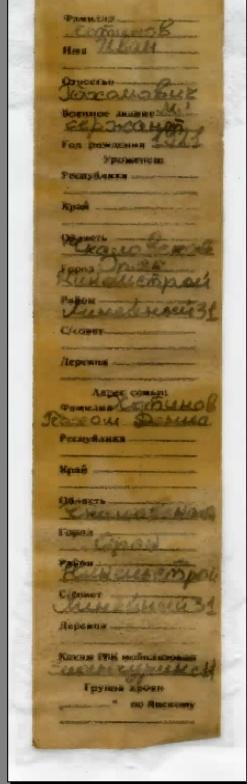 Фамилия
Хотинов
Имя Иван
Отчество
Пахомович
Военное звание М.
сержант
Год рождения 1921
Уроженец:
Республика
Край
Область
Чкаловская
Город Орск
Никельстрой
Район
Линейный 31
С/совет
Деревня
Адрес семьи:
Фамилия Хотинов
Пахом
Республика
Край
Область
Чкаловская
Город
Орск
Район
Никельстрой
С/совет
Линейный 31
Деревня
Каким РВК мобилизован
Группа крови
по Янскому